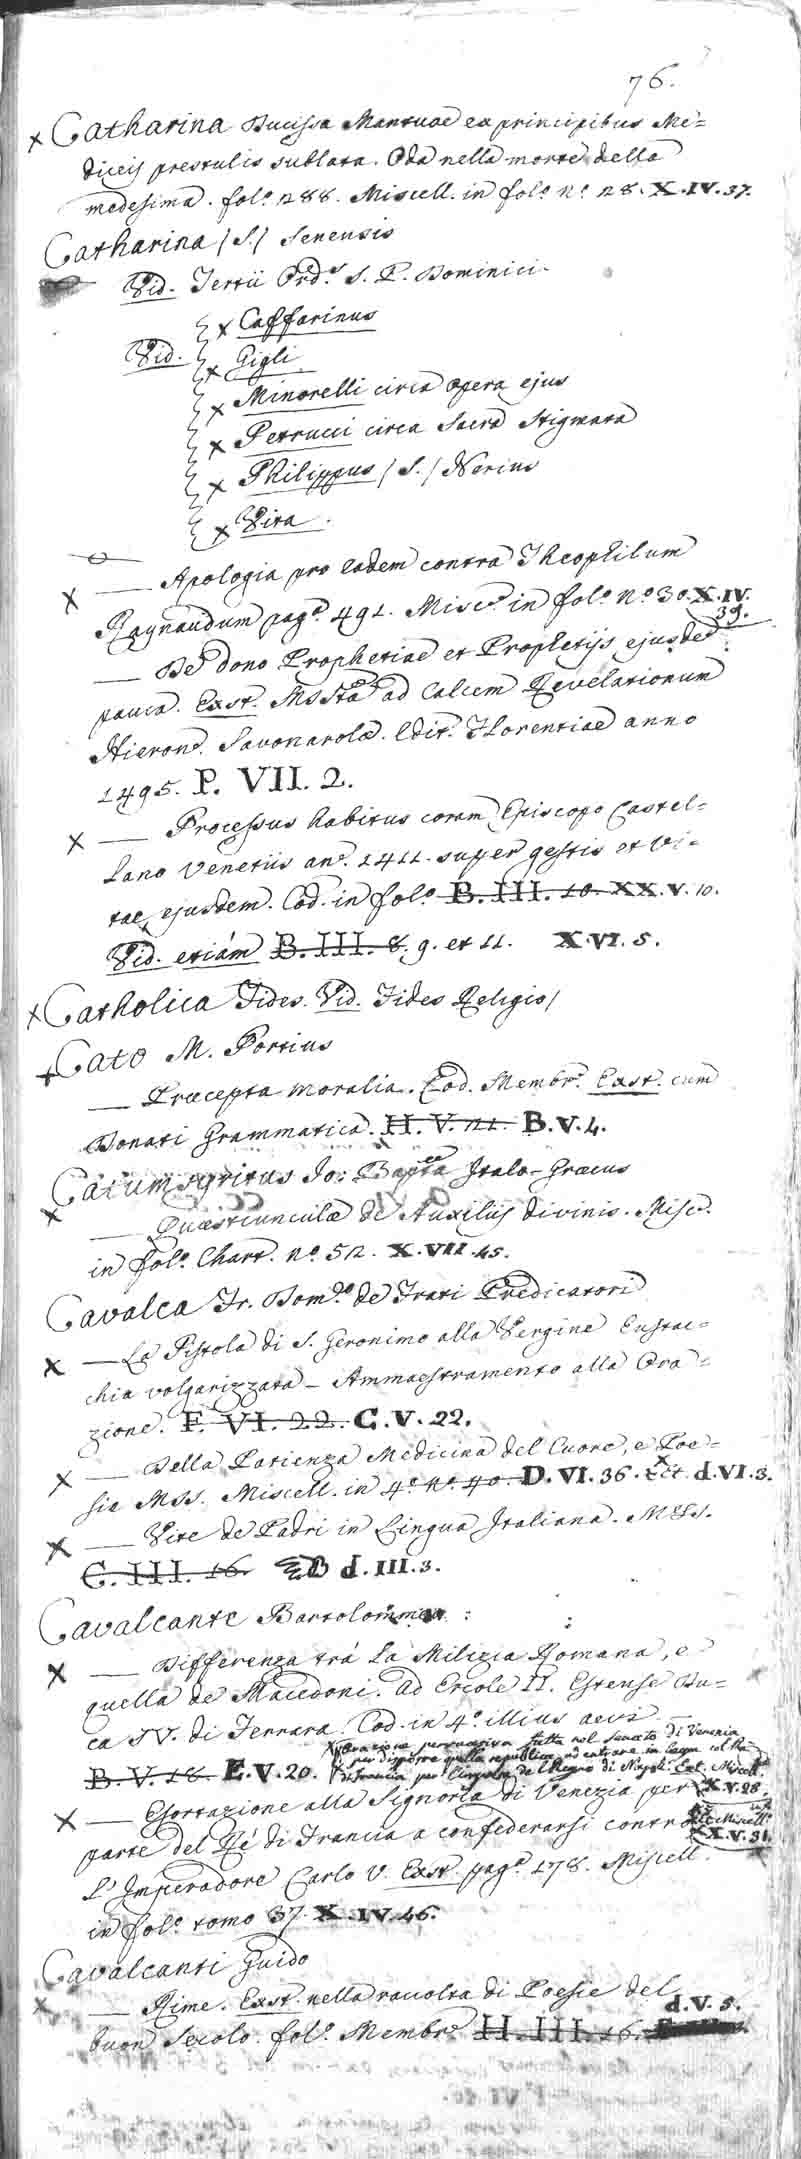 76.
x Catharina Ducissa Mantuae ex principibus Me=
diceis prestulis sublata. Oda nella morte della
medesima. fol.° 288. Miscell. in fol.° n.° 28. X.IV.37.
Catharina /S./ Senensis
Vid. Tertii Ord.s S. P. Dominici
x Caffarinus
Vid. x Gigli
x Minorelli circa opera ejus
x Petrucci circa Sacra Stigmata
x Philippus /S./ Nerius
x Vita.
x — Apologia pro eadem contra Theophilum
Raynaudum pag.e 491. Misc.e in fol.° n.° 30. X.IV.
39.
— De dono Prophetiae et Prophetijs ejusde
pauca. Exst. MSSta ad calcem Revelationum
Hieron. Savonarolæ. Edit. Florentiae anno
1495. P. VII. 2.
x — Processus habitus coram Episcopo Castel=
lano Venetiis an.° 1411. super gestis et vi=
tae ejusdem. Cod. in fol.° B. III. 10. XX.V.10.
Vid. etiám B. III. 8. 9. et 11. X.VI.5.
x Catholica Fides. Vid. Fides Religio/
x Cato M. Portius
— Præcepta moralia. Cod. Membr.° Exst. cum
Donati Grammatica. H. V. 21. B.V.4.
Catumsyritus Jo: Bapta Italo-Græcus
x — Quæstiunculæ de Auxilijs divinis. Misc.
in fol.° Chart. n.° 52. X.VII.45.
Cavalca Fr. Dom.° de Frati Predicatori
x — La Pistola di S. Geronimo alla Vergine Eustac=
chia volgarizzata – Ammaestramento alla Ora=
zione. F. VI. 22. C.V.22.
x — Della Patienza Medicina del Cuore, e Poe=
sie MSS. Miscell. in 4.° n.° 40. D.VI.36. x et. d.VI.3.
x — Vite de Padri in Lingua Italiana. MSS.
C. III. 16. d.III.3.
Cavalcante Bartolommeo
x — Differenza trá la Milizia Romana, e
quella de Macedoni. Ad Ercole II. Estense Du=
ca IV. di Ferrara. Cod. in 4.° illius aevi.
x Orazione persuasiva fatta nel Senato di Venezia
per disporre quella republica ad entrare in Lega col Re
B. V. 18. E.V.20. di Francia per l'impresa del Regno di Napoli. Ext. Miscell.
X.V.28
x — Esortazione alla Signoria di Venezia per
Miscell.
parte del Ré di Francia a confederarsi contro X.V.31
L'Imperadore Carlo V. Exst. pag.e 178. Miscell.
in fol.° tomo 37. X.IV.46.
Cavalcanti Guido
x — Rime. Exst. nella raccolta di Poesie del
d.V.5.
buon Secolo. fol.° Membr.° H. III. 16.